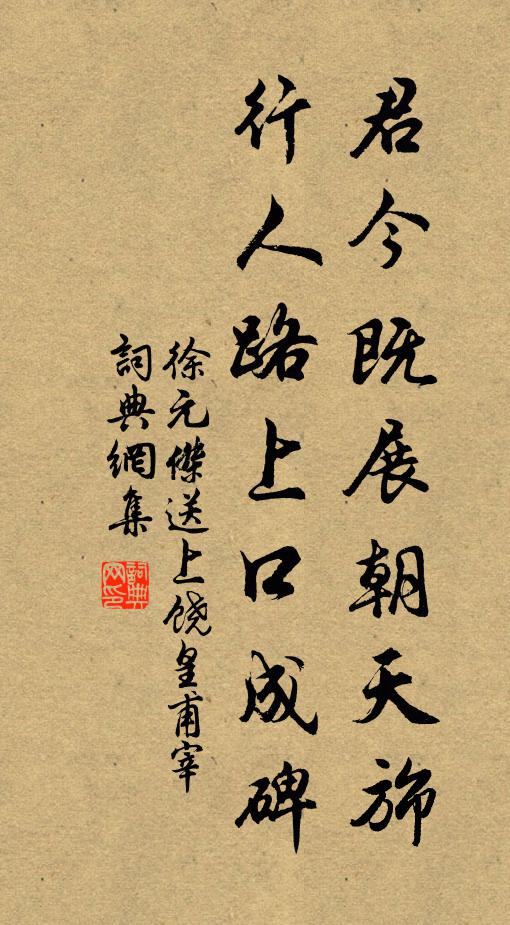 君今既展朝天旆
行人路上口成碑
徐元傑送上饒皇甫宰
詞典網集
詞典網印